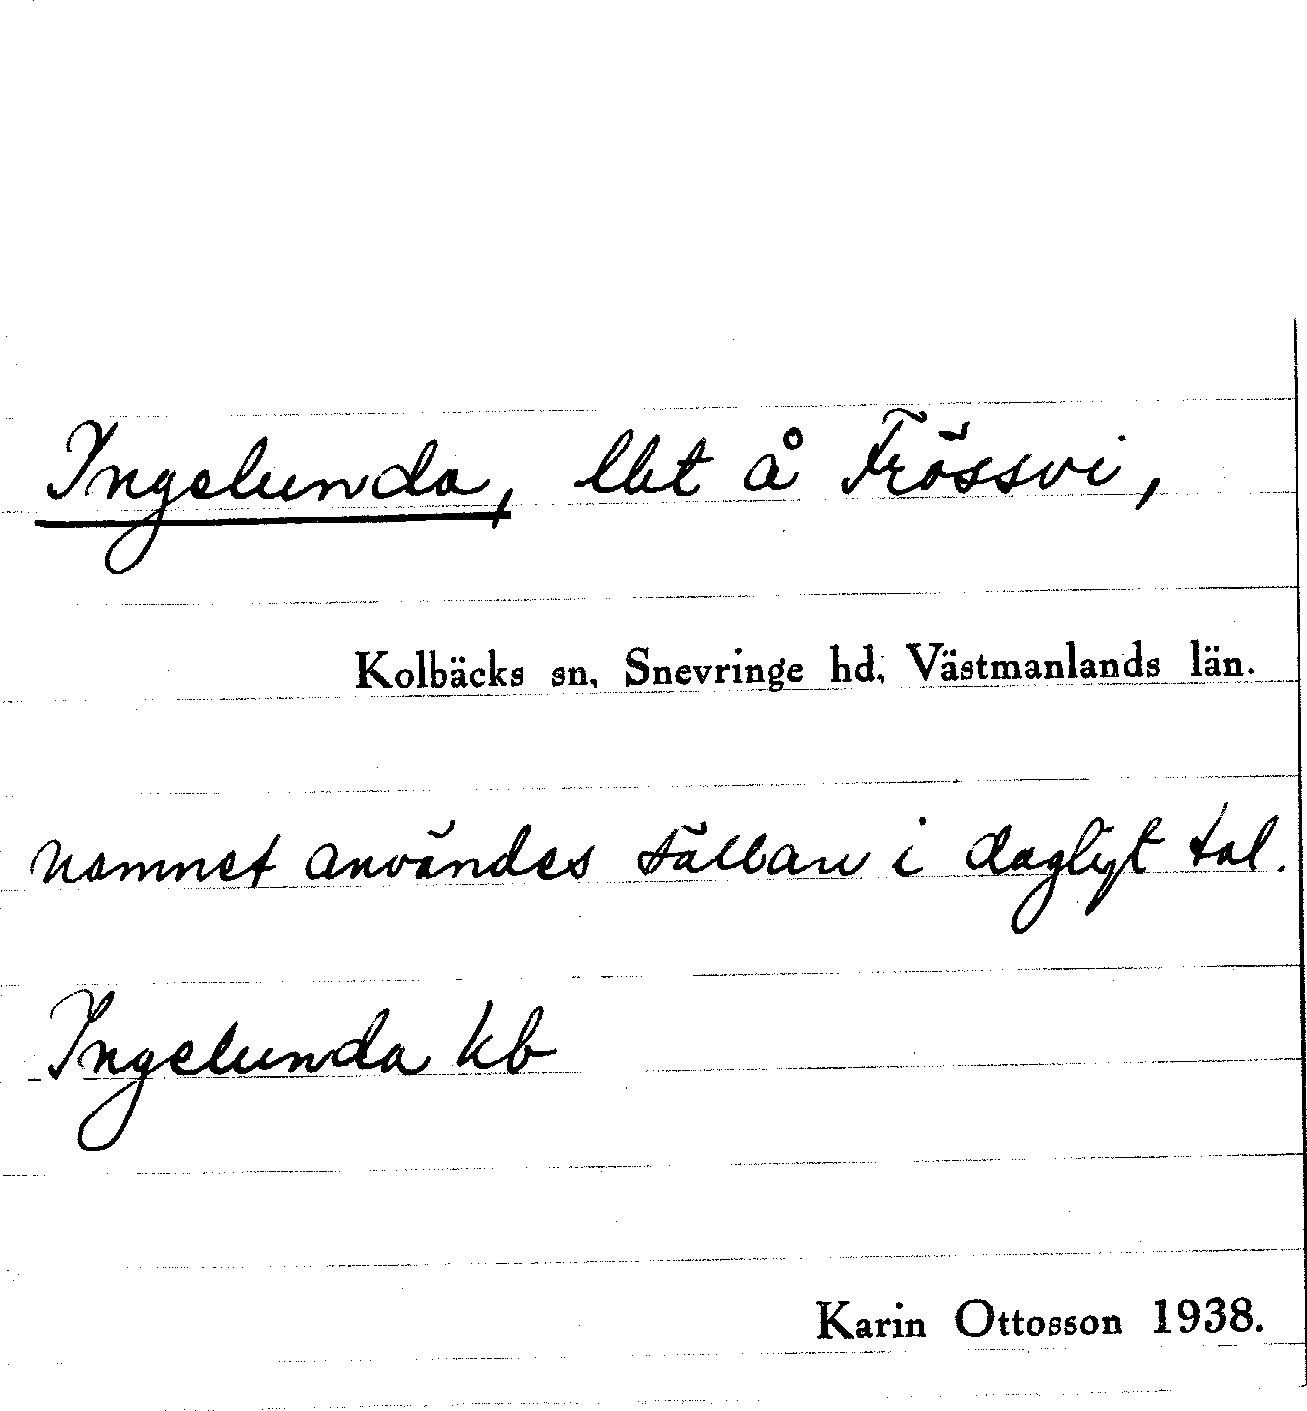 Ingelunda, lht å Frössvi,
Kolbäcks sn, Snevringe hd, Västmanlands län.
namnet användes sällan i dagligt tal.
Ingelunda kb
Karin Ottosson 1938.